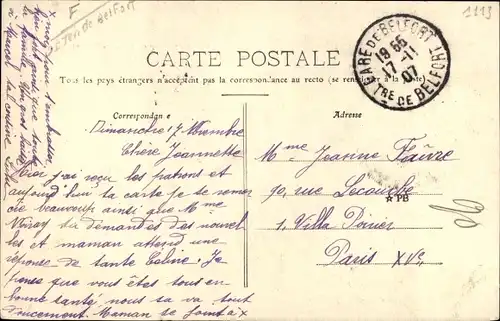 F
Ter. de Belfort
1113
CARTE POSTALE
Tous les pays étrangers n'acceptent pas la correspondance au recto (se renseigner à la poste)
GARE DE BELFORT
19 55
17 -11
07
TRE DE BELFORT
Correspondance
Adresse
Dimanche 17 Novembre
Chère Jeannette
Moi j'ai reçu les patrons et
aujourd'hui ta carte je te remer
cie beaucoup ainsi que Mme
tu demandes des nouvel
les et maman attend une
réponse de tante Céline. Je
pense que vous êtes tous en
bonne santé nous sa va tout
doucement. Maman se joint à x
x moi pour t'embrasser
bien fort ainsi que toute
la famille.
à Marcel ta cousine
Mme Jeanne Faivre
90, rue Lecourbe
PB
1, Villa Poirier
Paris XVe